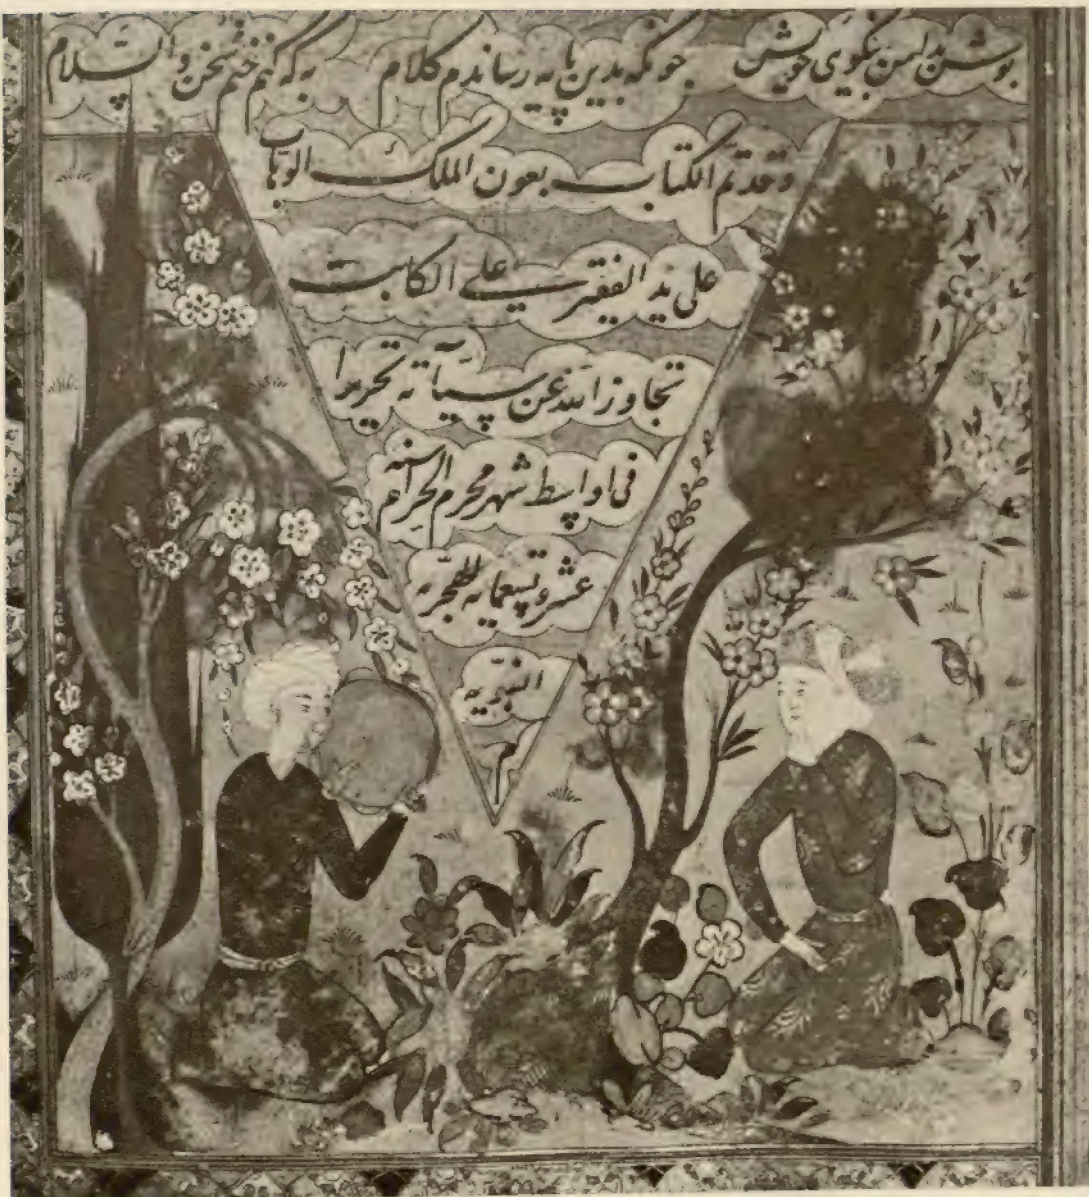 بدامن نیکوی خویش چونکه بدین پایه رساندم کلام به که کنم ختم سخن والسلام
وقد تم الکتاب بعون الملک الوهاب
علی ید الفقیر علی الکاتب
تجاوز الله عن سیآته تحریرا
فی اواسط شهر محرم الحرام سنه
عشر وتسعمایه الهجریه
النبویه
م